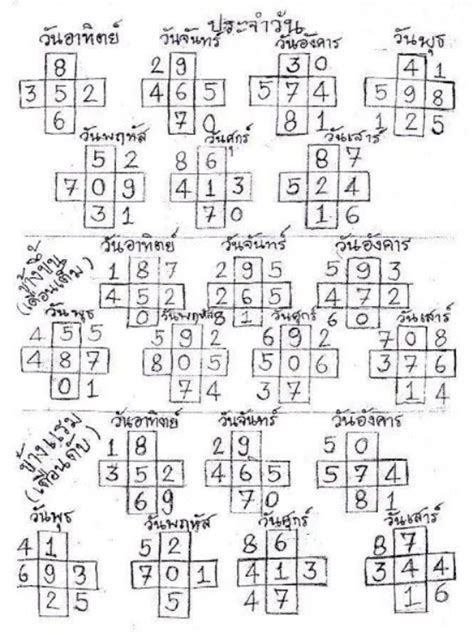 ประจำวัน
วันอาทิตย์ วันจันทร์ วันอังคาร วันพุธ
8 2 9 3 0 4 1
3 5 2 4 6 5 5 7 4 5 9 8
6 7 0 8 1 1 2 5
วันพฤหัส วันศุกร์ วันเสาร์
5 2 8 6 8 7
7 0 9 4 1 3 5 2 4
3 1 7 0 1 6
ข้างขึ้น
(เดือนเต็ม)
วันอาทิตย์ วันจันทร์ วันอังคาร
1 8 7 2 9 5 5 9 3
4 5 2 2 6 5 4 7 2
0 8 1 6 0
วันพุธ วันพฤหัส วันศุกร์ วันเสาร์
4 5 5 5 9 2 6 9 2 7 0 8
4 8 7 8 0 5 5 0 6 3 7 6
0 1 7 4 3 7 1 4
ข้างแรม
(เดือนดับ)
วันอาทิตย์ วันจันทร์ วันอังคาร
1 8 2 9 5 0
3 5 2 4 6 5 5 7 4
6 9 7 0 8 1
วันพุธ วันพฤหัส วันศุกร์ วันเสาร์
4 1 5 2 8 6 8 7
6 9 3 7 0 1 4 1 3 3 4 4
2 5 5 4 7 1 6